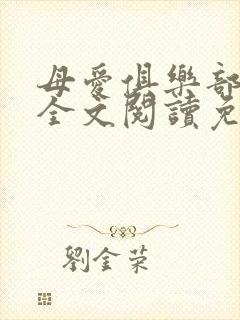 母愛俱樂部
全文閱讀免
劉金榮